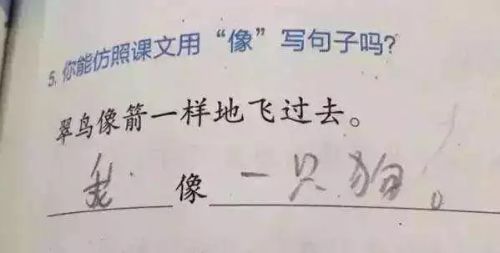 5. 你能仿照课文用“像”写句子吗?
翠鸟像箭一样地飞过去。
我 像 一只狗。